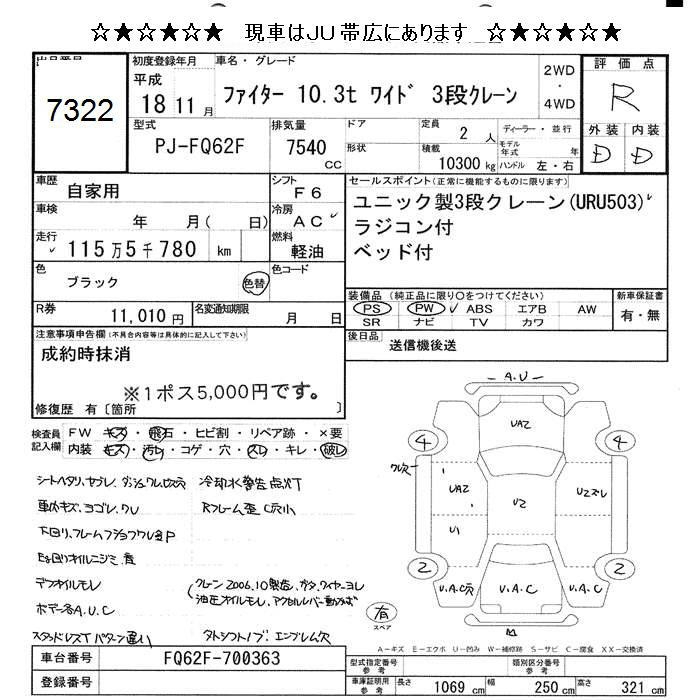 ☆★☆★☆★ 現車はJU帯広にあります ☆★☆★☆★
出品番号
7322
初度登録年月
平成
18 11 月
車名・グレード
ファイター 10.3t ワイド 3段クレーン
2WD
・
4WD
評価点
R
型式
PJ-FQ62F
排気量
7540
CC
ドア
形状
定員
2 人
積載
10300 kg
ディーラー・並行
モデル
年式 年
ハンドル 左・右
外装 内装
D D
車歴
自家用
シフト
F6
車検
年 月( 日)
冷房
AC
走行
115万5千780 km
燃料
軽油
色
ブラック
色替
色コード
R券
11,010 円
名変通知期限
月 日
セールスポイント(正常に機能するものに限ります)
ユニック製3段クレーン(URU503)
ラジコン付
ベッド付
装備品 (純正品に限り○をつけてください)
PS PW ABS エアB AW
SR ナビ TV カワ
新車保証書
有・無
後日品
送信機後送
注意事項申告欄(不具合内容等は具体的に記入して下さい)
成約時抹消
※1ポス5,000円です。
修復歴 有〔箇所 〕
検査員
記入欄
FW キズ・飛石・ヒビ割・リペア跡・×要
内装 キズ・汚レ・コゲ・穴・スレ・キレ・破レ
冷却水警告点灯
下回り、フレーム
デフオイルモレ
ボデー各A.U.C
クレーン2006.10製造、ガタ、ワイヤーヨレ
油圧オイルモレ、アクセルレバー動かず
スタッドレスTパターン違い
タトシフトノブ エンブレム欠
A.U
UAZ
4
4
UAZ
UZ
UZズレ
U1
2
2
U.A.C穴
U.A.C
U.A.C
有
スペア
A-キズ E-エクボ U-凹み W-補修跡 S-サビ C-腐食 XX-交換済
車台番号
FQ62F-700363
登録番号
型式指定番号
参考
類別区分番号
参考
車庫証明用
参考
長さ 1069 cm 幅 250 cm 高さ 321 cm